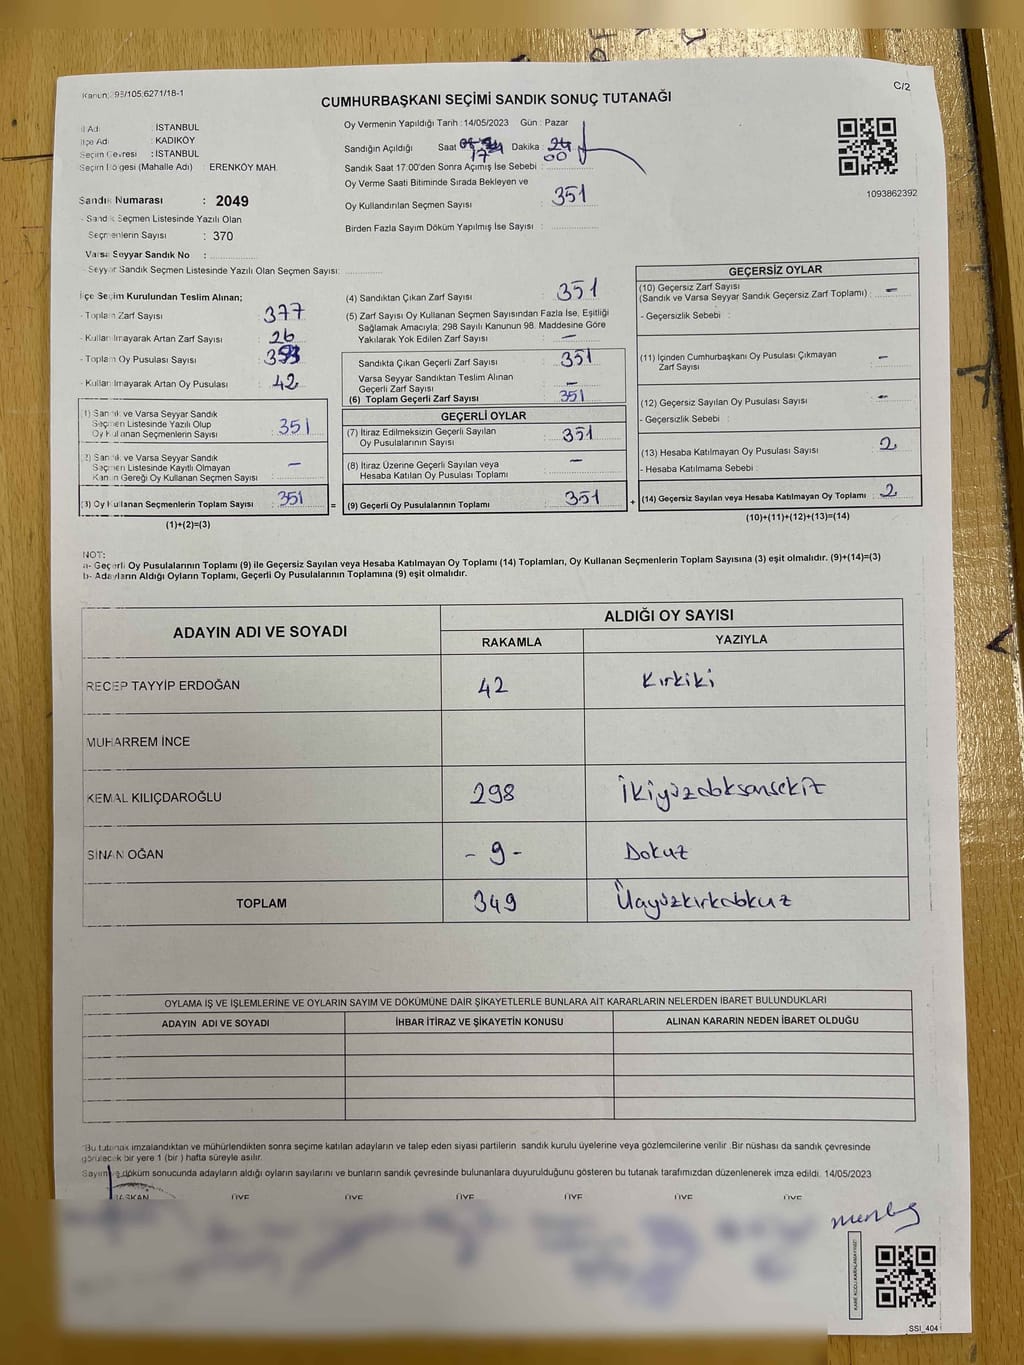 Kanun: 98/105;6271/18-1
C/2
CUMHURBAŞKANI SEÇİMİ SANDIK SONUÇ TUTANAĞI
İl Adı : İSTANBUL
İlçe Adı : KADIKÖY
Seçim Çevresi : İSTANBUL
Seçim Bölgesi (Mahalle Adı) : ERENKÖY MAH.
Sandık Numarası : 2049
- Sandık Seçmen Listesinde Yazılı Olan
Seçmenlerin Sayısı : 370
Varsa Seyyar Sandık No :
- Seyyar Sandık Seçmen Listesinde Yazılı Olan Seçmen Sayısı:
Oy Vermenin Yapıldığı Tarih :14/05/2023 Gün : Pazar
Sandığın Açıldığı Saat 17 Dakika : 00
Sandık Saat 17:00'den Sonra Açımış İse Sebebi :
Oy Verme Saati Bitiminde Sırada Bekleyen ve
Oy Kullandırılan Seçmen Sayısı : 351
Birden Fazla Sayım Döküm Yapılmış İse Sayısı :
1093862392
İlçe Seçim Kurulundan Teslim Alınan;
- Toplam Zarf Sayısı : 377
- Kullanılmayarak Artan Zarf Sayısı : 26
- Toplam Oy Pusulası Sayısı :
- Kullanılmayarak Artan Oy Pusulası : 42
(1) Sandık ve Varsa Seyyar Sandık
Seçmen Listesinde Yazılı Olup
Oy Kullanan Seçmenlerin Sayısı : 351
(2) Sandık ve Varsa Seyyar Sandık
Seçmen Listesinde Kayıtlı Olmayan
Kanun Gereği Oy Kullanan Seçmen Sayısı : –
(3) Oy Kullanan Seçmenlerin Toplam Sayısı : 351
(1)+(2)=(3)
=
(4) Sandıktan Çıkan Zarf Sayısı : 351
(5) Zarf Sayısı Oy Kullanan Seçmen Sayısından Fazla İse, Eşitliği
Sağlamak Amacıyla; 298 Sayılı Kanunun 98. Maddesine Göre
Yakılarak Yok Edilen Zarf Sayısı : –
Sandıkta Çıkan Geçerli Zarf Sayısı : 351
Varsa Seyyar Sandıktan Teslim Alınan
Geçerli Zarf Sayısı : –
(6) Toplam Geçerli Zarf Sayısı : 351
GEÇERLİ OYLAR
(7) İtiraz Edilmeksizin Geçerli Sayılan
Oy Pusulalarının Sayısı : 351
(8) İtiraz Üzerine Geçerli Sayılan veya
Hesaba Katılan Oy Pusulası Toplamı : –
(9) Geçerli Oy Pusulalarının Toplamı : 351
+
GEÇERSİZ OYLAR
(10) Geçersiz Zarf Sayısı
(Sandık ve Varsa Seyyar Sandık Geçersiz Zarf Toplamı) : –
- Geçersizlik Sebebi :
(11) İçinden Cumhurbaşkanı Oy Pusulası Çıkmayan
Zarf Sayısı : –
(12) Geçersiz Sayılan Oy Pusulası Sayısı : –
- Geçersizlik Sebebi :
(13) Hesaba Katılmayan Oy Pusulası Sayısı : 2
- Hesaba Katılmama Sebebi :
(14) Geçersiz Sayılan veya Hesaba Katılmayan Oy Toplamı : 2
(10)+(11)+(12)+(13)=(14)
NOT:
a- Geçerli Oy Pusulalarının Toplamı (9) ile Geçersiz Sayılan veya Hesaba Katılmayan Oy Toplamı (14) Toplamları, Oy Kullanan Seçmenlerin Toplam Sayısına (3) eşit olmalıdır. (9)+(14)=(3)
b- Adayların Aldığı Oyların Toplamı, Geçerli Oy Pusulalarının Toplamına (9) eşit olmalıdır.
ADAYIN ADI VE SOYADI
ALDIĞI OY SAYISI
RAKAMLA YAZIYLA
RECEP TAYYİP ERDOĞAN 42 Kırkiki
MUHARREM İNCE
KEMAL KILIÇDAROĞLU 298 İkiyüzdoksansekiz
SİNAN OĞAN - 9 - Dokuz
TOPLAM 349 Üçyüzkırkdokuz
OYLAMA İŞ VE İŞLEMLERİNE VE OYLARIN SAYIM VE DÖKÜMÜNE DAİR ŞİKAYETLERLE BUNLARA AİT KARARLARIN NELERDEN İBARET BULUNDUKLARI
ADAYIN ADI VE SOYADI İHBAR İTİRAZ VE ŞİKAYETİN KONUSU ALINAN KARARIN NEDEN İBARET OLDUĞU
Bu tutanak imzalandıktan ve mühürlendikten sonra seçime katılan adayların ve talep eden siyasi partilerin sandık kurulu üyelerine veya gözlemcilerine verilir. Bir nüshası da sandık çevresinde
görülecek bir yere 1 (bir ) hafta süreyle asılır.
Sayım ve döküm sonucunda adayların aldığı oyların sayılarını ve bunların sandık çevresinde bulunanlara duyurulduğunu gösteren bu tutanak tarafımızdan düzenlenerek imza edildi. 14/05/2023
BAŞKAN ÜYE ÜYE ÜYE ÜYE ÜYE ÜYE
SSI_404